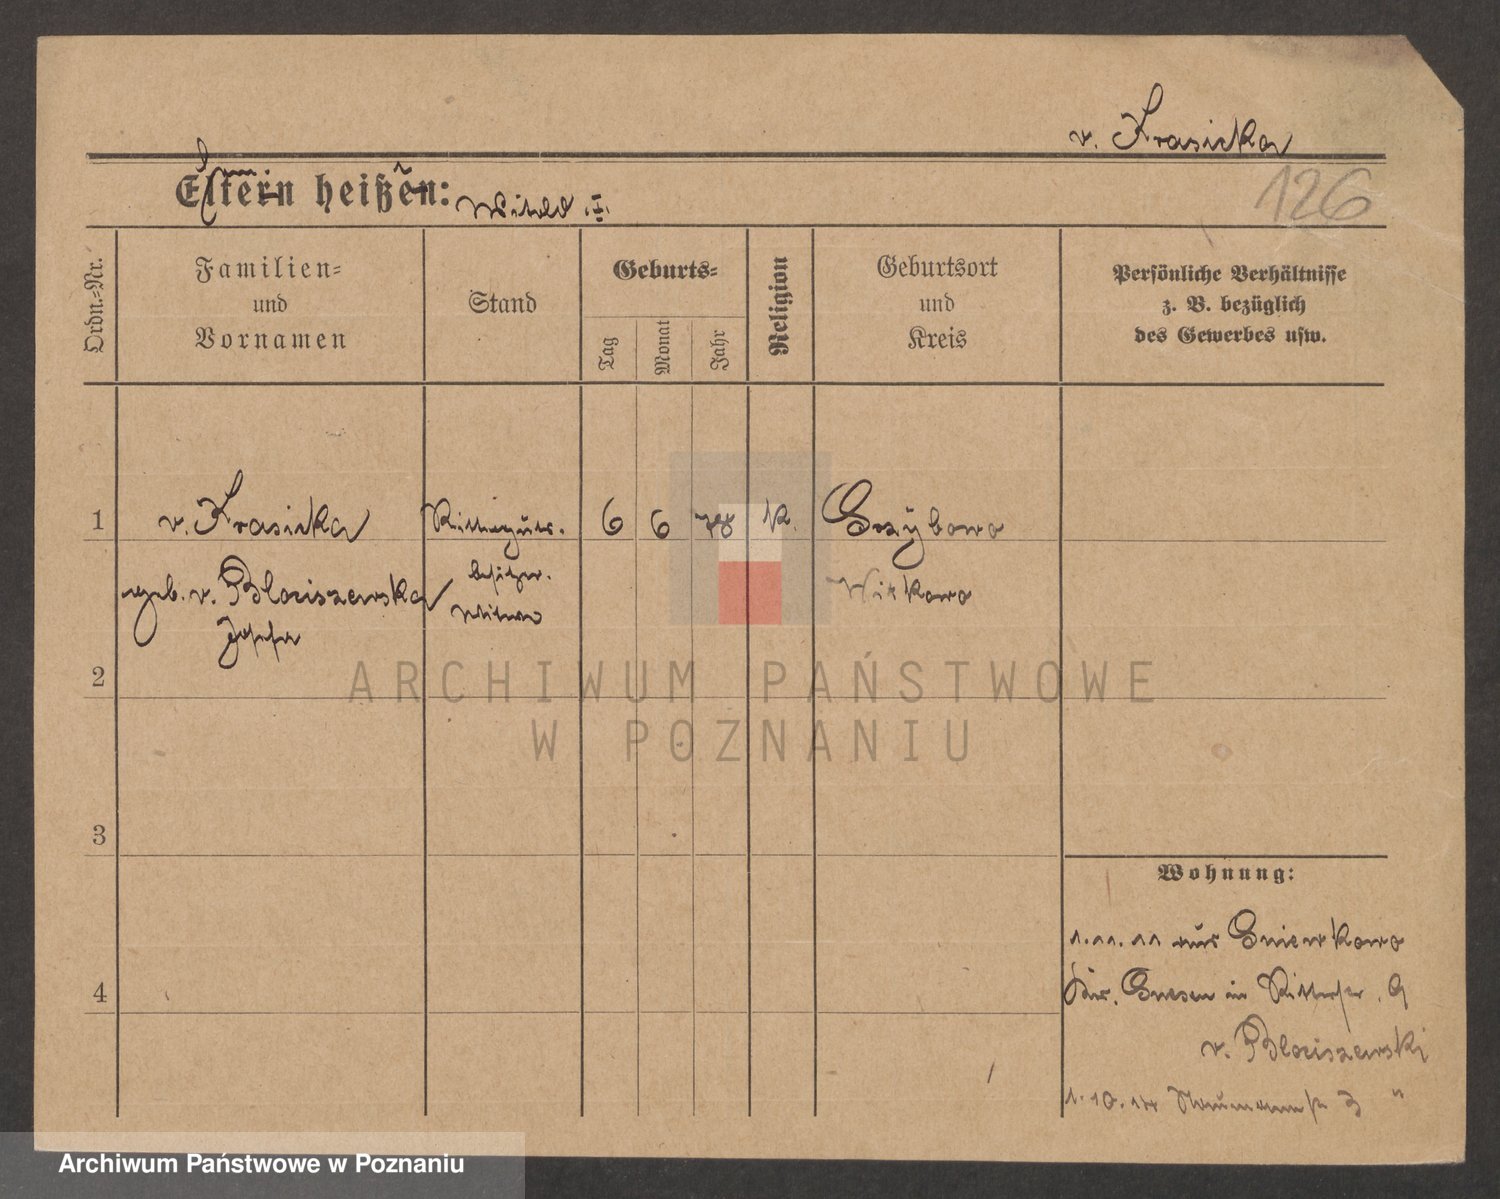 v. Krasicka
Eltern heißen: Witold I.
126
Ordn.-Nr.
Familien-
und
Vornamen
Stand
Geburts-
Tag
Monat
Jahr
Religion
Geburtsort
und
Kreis
Persönliche Verhältnisse
z. B. bezüglich
des Gewerbes usw.
1
v. Krasicka
Ritterguts-
6 6 78 k.
Grzybowo
geb. v. Blociszewska
besitzer.
Witwe
Witkowo
Josefa
2
ARCHIWUM PAŃSTWOWE
W POZNANIU
3
Wohnung:
1.11.11 aus Gniewkowo
4
Kr. Gnesen in Ritterstr. 9
v. Blociszewski
1.10.14 Naumannstr 3 "
Archiwum Państwowe w Poznaniu